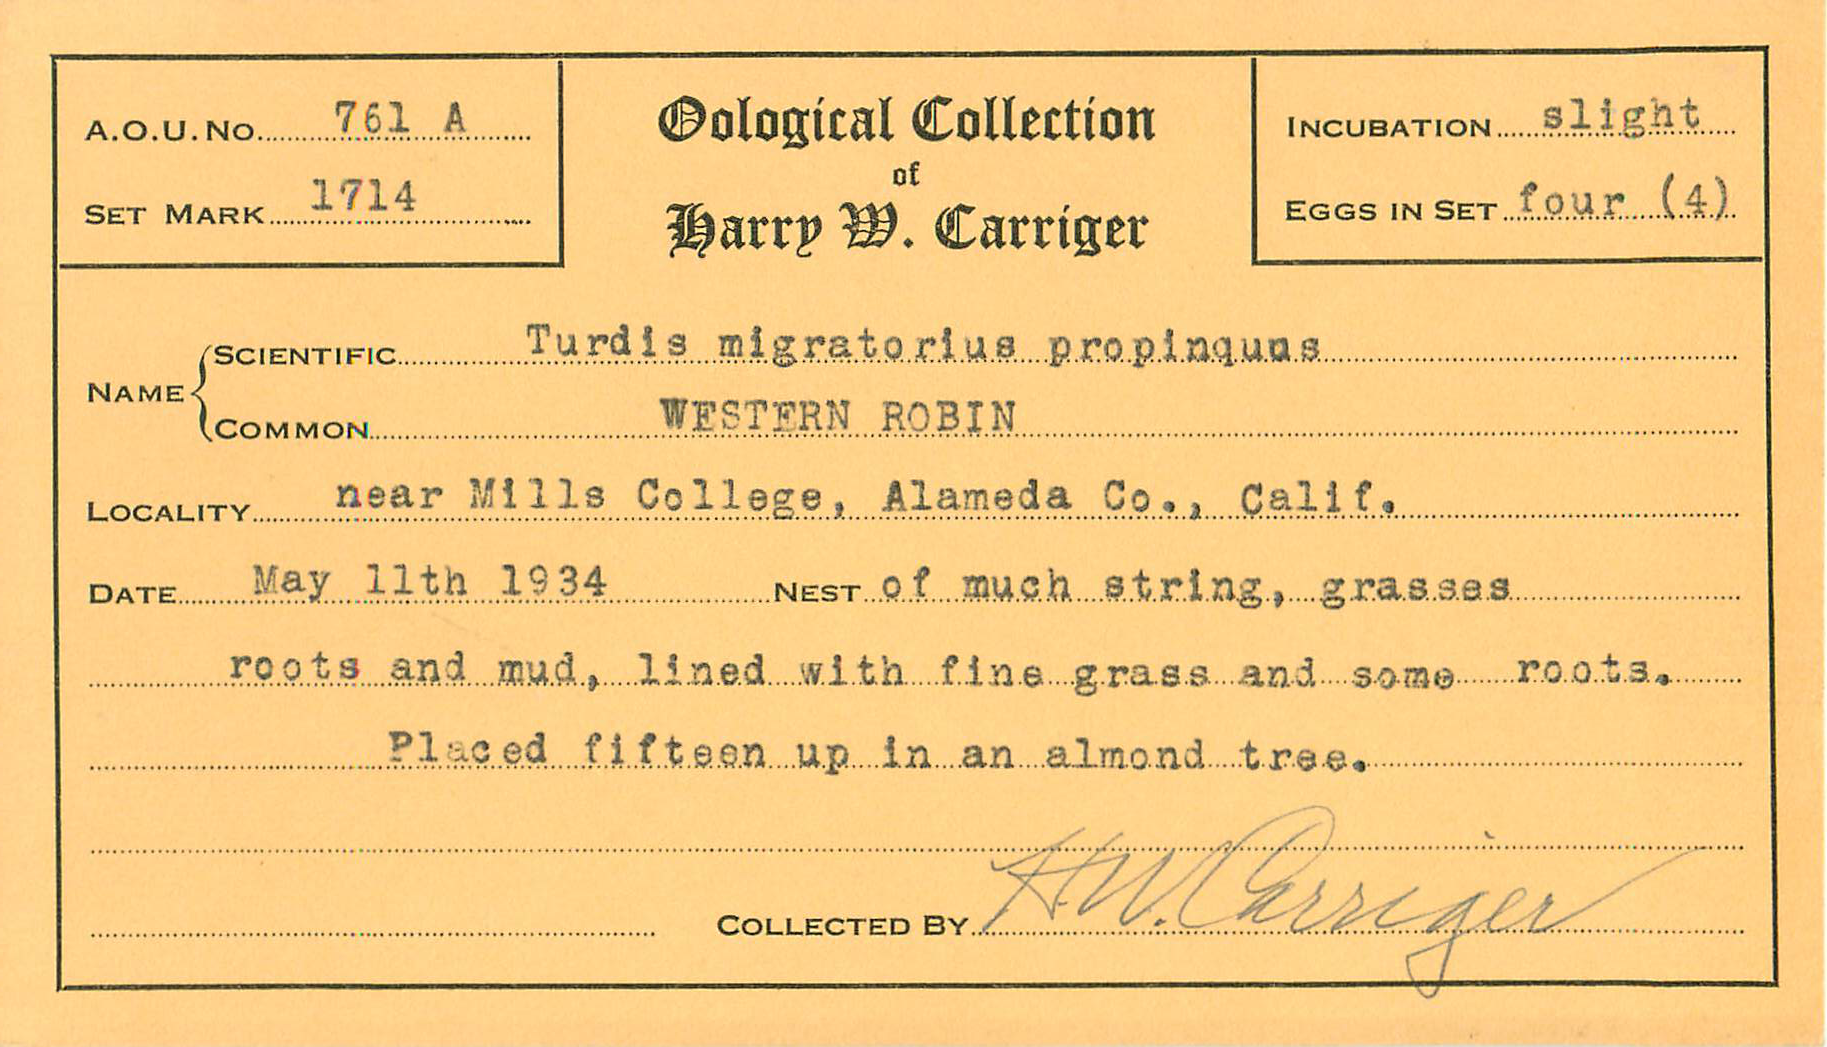 A.O.U. No. 761 A
SET MARK 1714
Oological Collection
of
Harry W. Carriger
INCUBATION slight
EGGS IN SET four (4)
NAME
SCIENTIFIC Turdis migratorius propinquus
COMMON WESTERN ROBIN
LOCALITY near Mills College, Alameda Co., Calif.
DATE May 11th 1934 NEST of much string, grasses
roots and mud, lined with fine grass and some roots.
Placed fifteen up in an almond tree.
COLLECTED BY H.W. Carriger